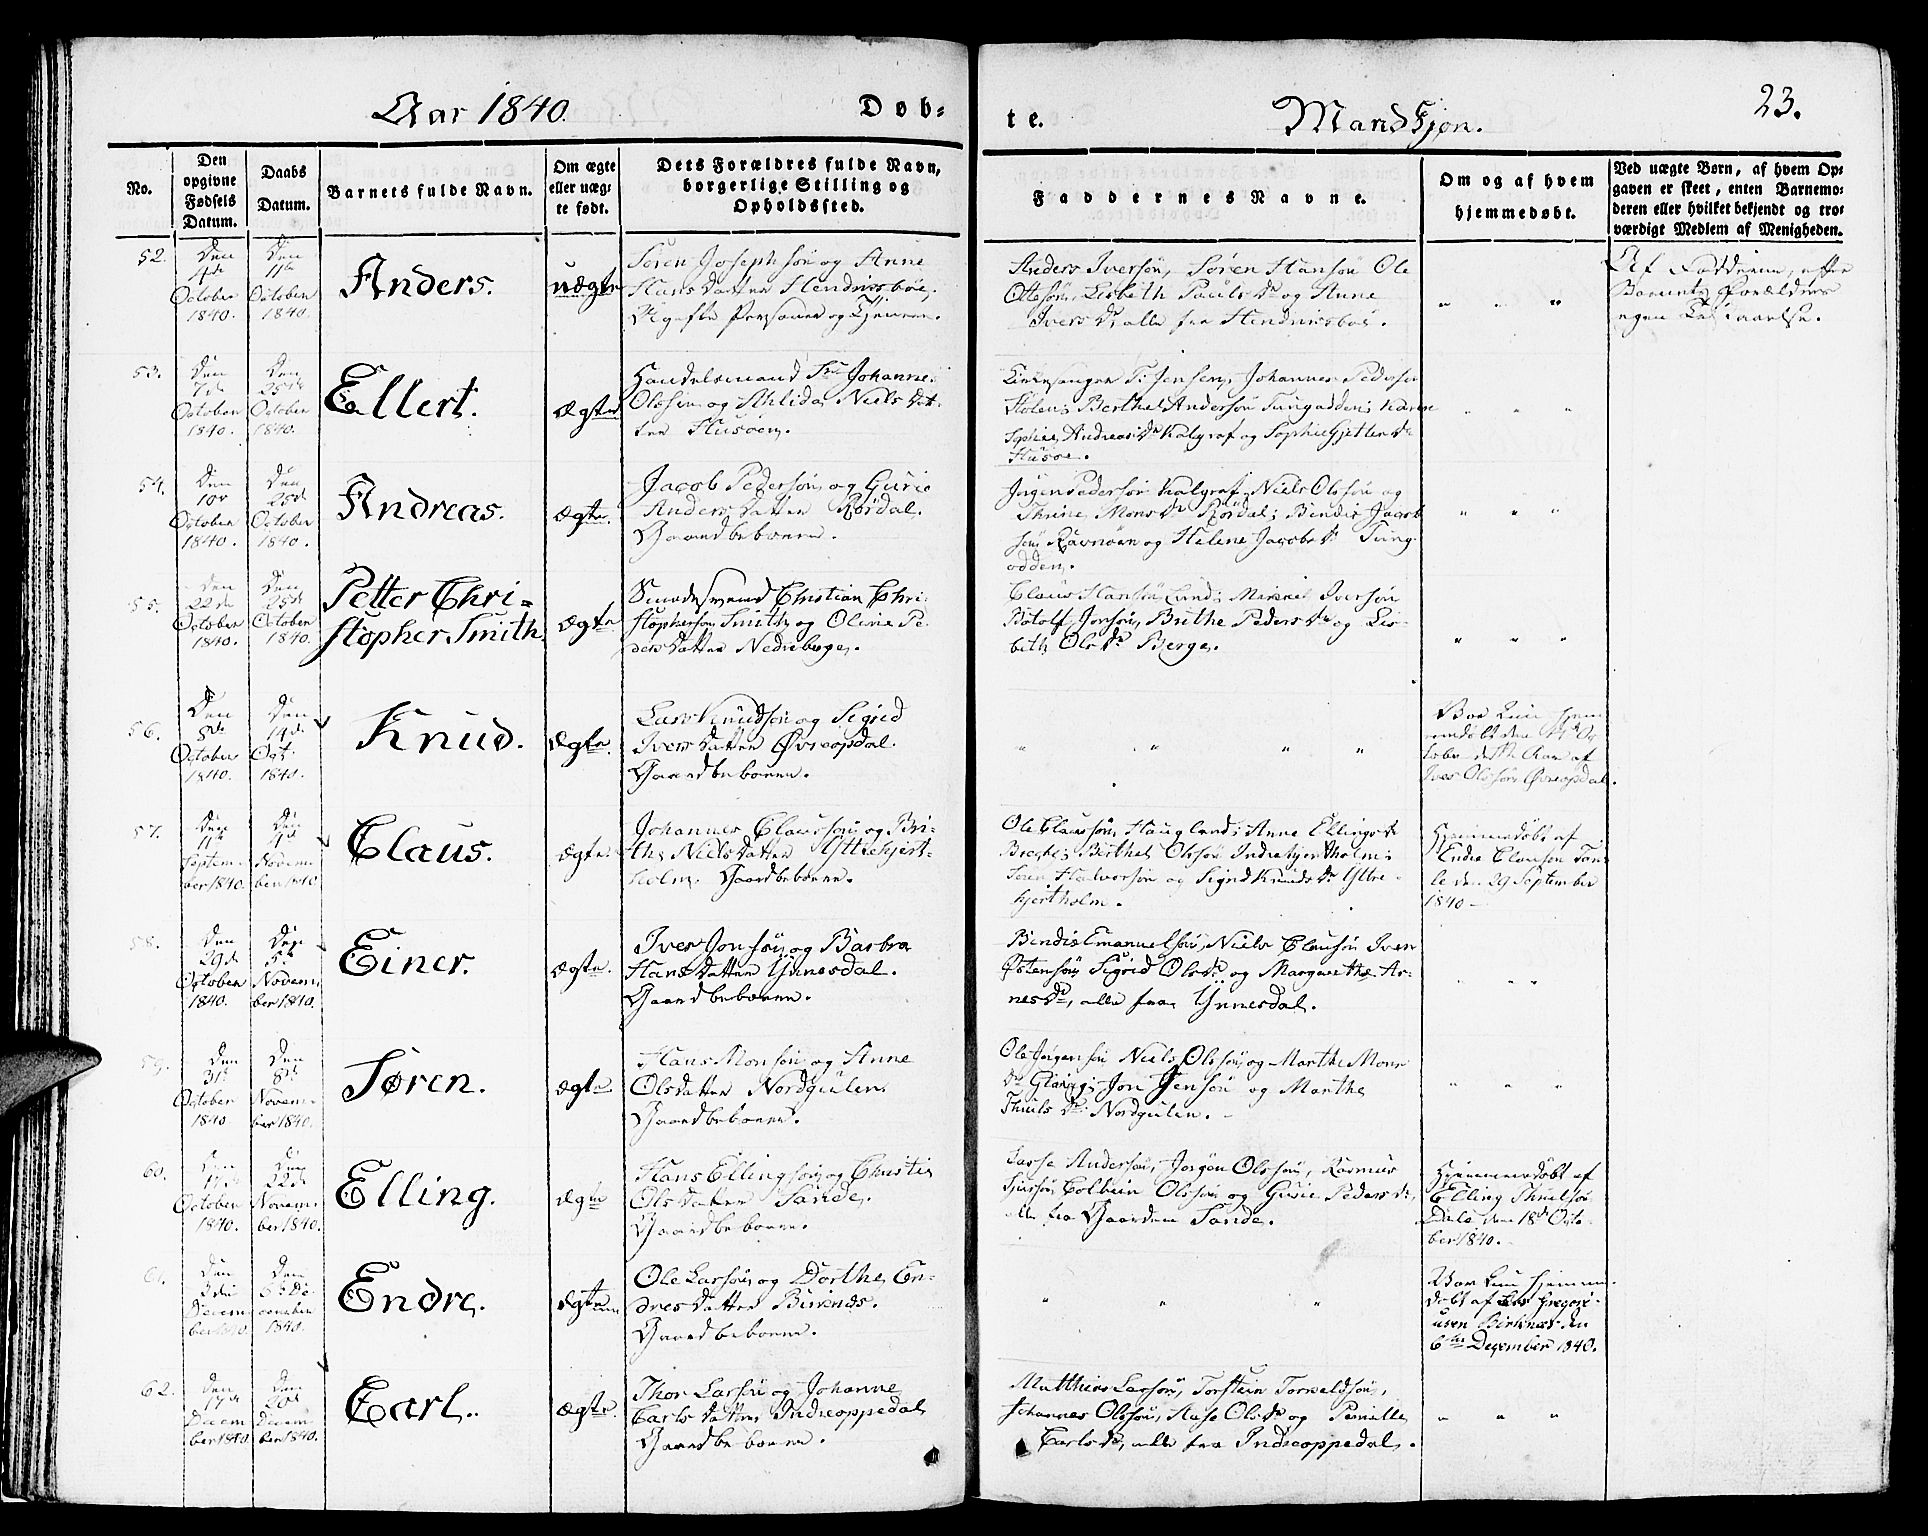 Aar 1840. Døb-
te. Mandkjøn. 23.
No.
Den opgivne Fødsels Datum.
Daabs Datum.
Barnets fulde Navn.
Om ægte eller uæg-te født.
Dets Forældres fulde Navn, borgerlige Stilling og Opholdssted.
Faddernes Navne.
Om og af hvem hjemmedøbt.
Ved uægte Børn, af hvem Op-
gaven er skeet, enten Barnemo-
deren eller hvilket bekjendt og tro-
værdigt Medlem af Menigheden.
52.
Den 4de October 1840.
Den 11te October 1840.
Anders.
uægte
Søren Josephsøn og Anne
Hansdatter Hendriksbøe,
Ugifte Personer og Tjenere.
Anders Iversøn, Søren Hansøn Ole
Ottesøn, Lisbeth Pauls Dr og Anne
Ivers Dr, alle fra Hendriksboe.
Af Fadderne, efter
Barnets Forældres
egen
53.
Den 7de October 1840.
Den 25de October 1840.
Ellert.
Ægte
Handelsmand Sr. Johannes
Olssøn og Ahlida Niels Dat-
ter Husøen.
Kirkesanger T. Jensen, Johannes Pedersen
Holen; Berthel Andersøn Tungodden; Karen
Sophie Andreas Dr Kalgraf og Sophie Gjetler Dr
Husøe.
54.
Den 10de October 1840.
Den 25de October 1840.
Andreas.
Ægte.
Jacob Pedersøn og Gurie
Anders Datter Rørdal.
Gaardbeboere.
Jørgen Pedersøn Kalgraf, Niels Olssøn og
Thrine Mons Dr Rørdal; Bendix Jacob
søn Ravnøen og Helene Jacobs Dr Tung
odden.
55.
Den 22de October 1840.
Den 25de October 1840.
Petter Chri-
stopher Smith.
Ægte
Smedesvend Christian Chri-
stophersøn Smith og Oline Pe-
ders Datter Nedreberge.
Claus Hansøn Lund; Mikkel Iversøn
Botolf Jonsøn, Brithe Peders Dr og Lis-
beth Ols Dr Berge.
56.
Den 8de October 1840.
Den 14de Oct. 1840.
Knud.
Ægte.
Lars Knudsøn og Sigrid
Ivers Datter Øvreopdal.
Gaardbeboere.
Var kun hjem
medøbt den 14de Oc
tober dette Aar af
Iver Olssøn Øvreopdal.
57.
Den 11te Septem-
ber 1840.
Den 1ste Novem-
ber 1840.
Claus.
Ægte.
Johannes Claussøn og Bri-
the Niels Datter Yttrehjert-
holm. Gaardbeboere.
Ole Claussøn, Haugland; Anne Ellings Dr
Brekke; Berthel Olssøn Indrehjertholm;
Søren Halvorsøn og Sigrid Knuds Dr Yttre-
hjertholm.
Hjemmedøbt af
Endre Clausøn Tan-
le den 29 September
1840.
58.
Den 29de October 1840.
Den 5te Novem-
ber 1840.
Einer.
Ægte.
Iver Jonsøn og Barbra
Hans Datter Ynnesdal.
Gaardbeboere.
Bendix Emanuelsøn, Niels Clausøn Iver
Østensøn, Sigrid Ols Dr og Margrethe Ar-
nes Dr, alle fra Ynnesdal.
59.
Den 31te October 1840
Den 8de Novem-
ber 1840.
Søren.
Ægte
Hans Monsøn og Anne
Olsdatter Nordgulen.
Gaardbeboere.
Ole Jørgensøn Niels Olssøn og Marthe Mons
Dr Glavig; Jon Jensøn og Marthe
Thuls Dr: Nordgulen.
60.
Den 17de October 1840.
Den 22de Novem-
ber 1840.
Elling.
Ægte
Hans Ellingsøn og Christi
Ols Datter Sande.
Gaardbeboere.
Lasse Andersøn, Jørgen Olssøn, Rasmus
Sjursøn, Colbein Olssøn og Gurie Peders Dr,
alle fra Gaarden Sande.
Hjemmedøbt af
Elling
Dale den 18de Octo-
ber 1840.
61.
Den 3die Decem-
ber 1840.
Den 6te De-
cember 1840.
Endre.
Ægte
Ole Larsøn og Dorthe En-
dres Datter Birknes.
Gaardbeboere.
Var kun hjemme-
døbt af Lars Gregori-
ussen Birknes den
6te December 1840.
62.
Den 17de Decem-
ber 1840.
Den 20de Decem-
ber 1840.
Carl.
Ægte.
Thor Larsøn og Johanne
Carls Datter Indreoppedal
Gaardbeboere.
Matthias Larsøn, Torstein Torvaldsøn,
Johannes Olssøn, Aase Ols Dr og Pernille
Carls Dr, alle fra Indreoppedal.